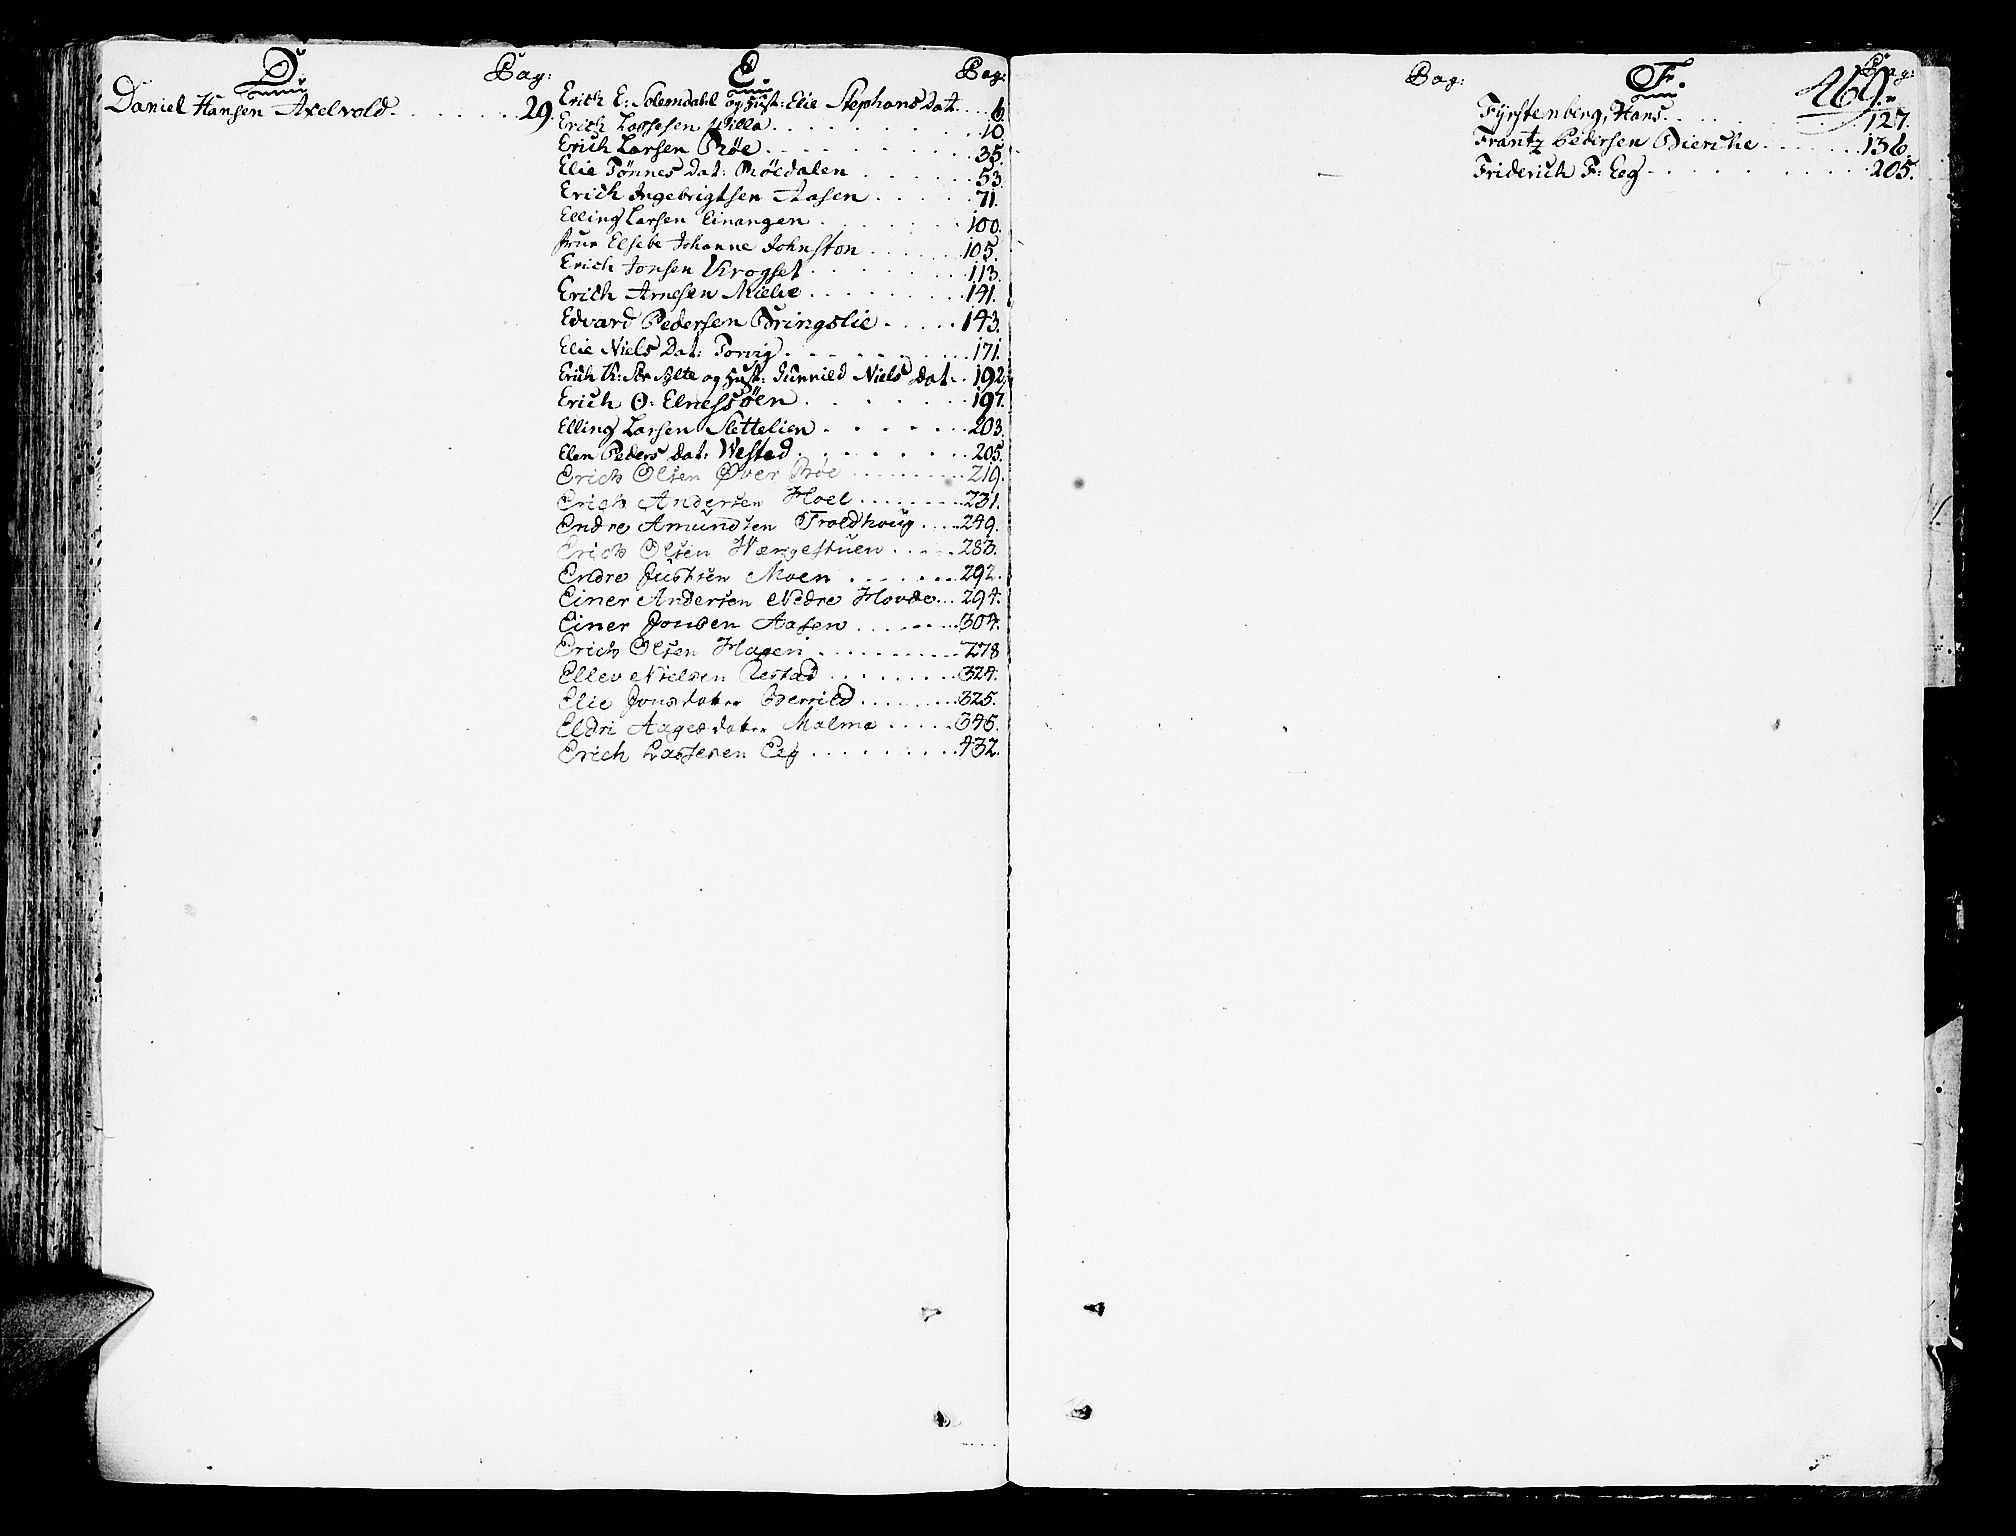 D. Pag:
Daniel Hansen Axelvold. 29.
E. Pag:
Erich E: Solemdahl og Hust: Elie Stephans Dat. 6
Erich Lassesen Willa. 10.
Erich Larsen Røe. 35.
Elie Tønnes Dat: Røedalen 53.
Erich Ingebrigtsen Aasen 71.
Elling Larsen Einangen 100.
Frue Elsebe Johanne Johnston 105.
Erich Jonsen Krogset 113.
Erich Arnesen Mielve 141.
Edvard Pedersen Bringslie 143.
Elie Niels Dat: Torvig 171.
Erich K: Sylte og Hust: Gunnild Niels dat. 192.
Erich O: Elnessøen 197.
Elling Larsen Slettelien 203.
Elen Peders dat: Westad 205.
Erich Olsen Øver Røe 219.
Erich Andersen Hoel 231.
Endre Amundsen Troldhoug 249.
Erich Olsen Hængestuen 283.
Endre Justsen Moen 292.
Einer Andersen Nedre Hovde 294.
Einer Jonsen Aasen 304.
Erich Olsen Hagen 278
Ellev Nielsen Restad 324.
Elie Jonsdatter Berrild 325.
Eldri Aagesdatter Malme 345.
Erich Lassesen Eeg 432.
Pag:
F. Pag:
269.
Fyrstenberg, Hans. 127.
Frantz Pedersen Bierche 136.
Friderich F: Eeg 205.